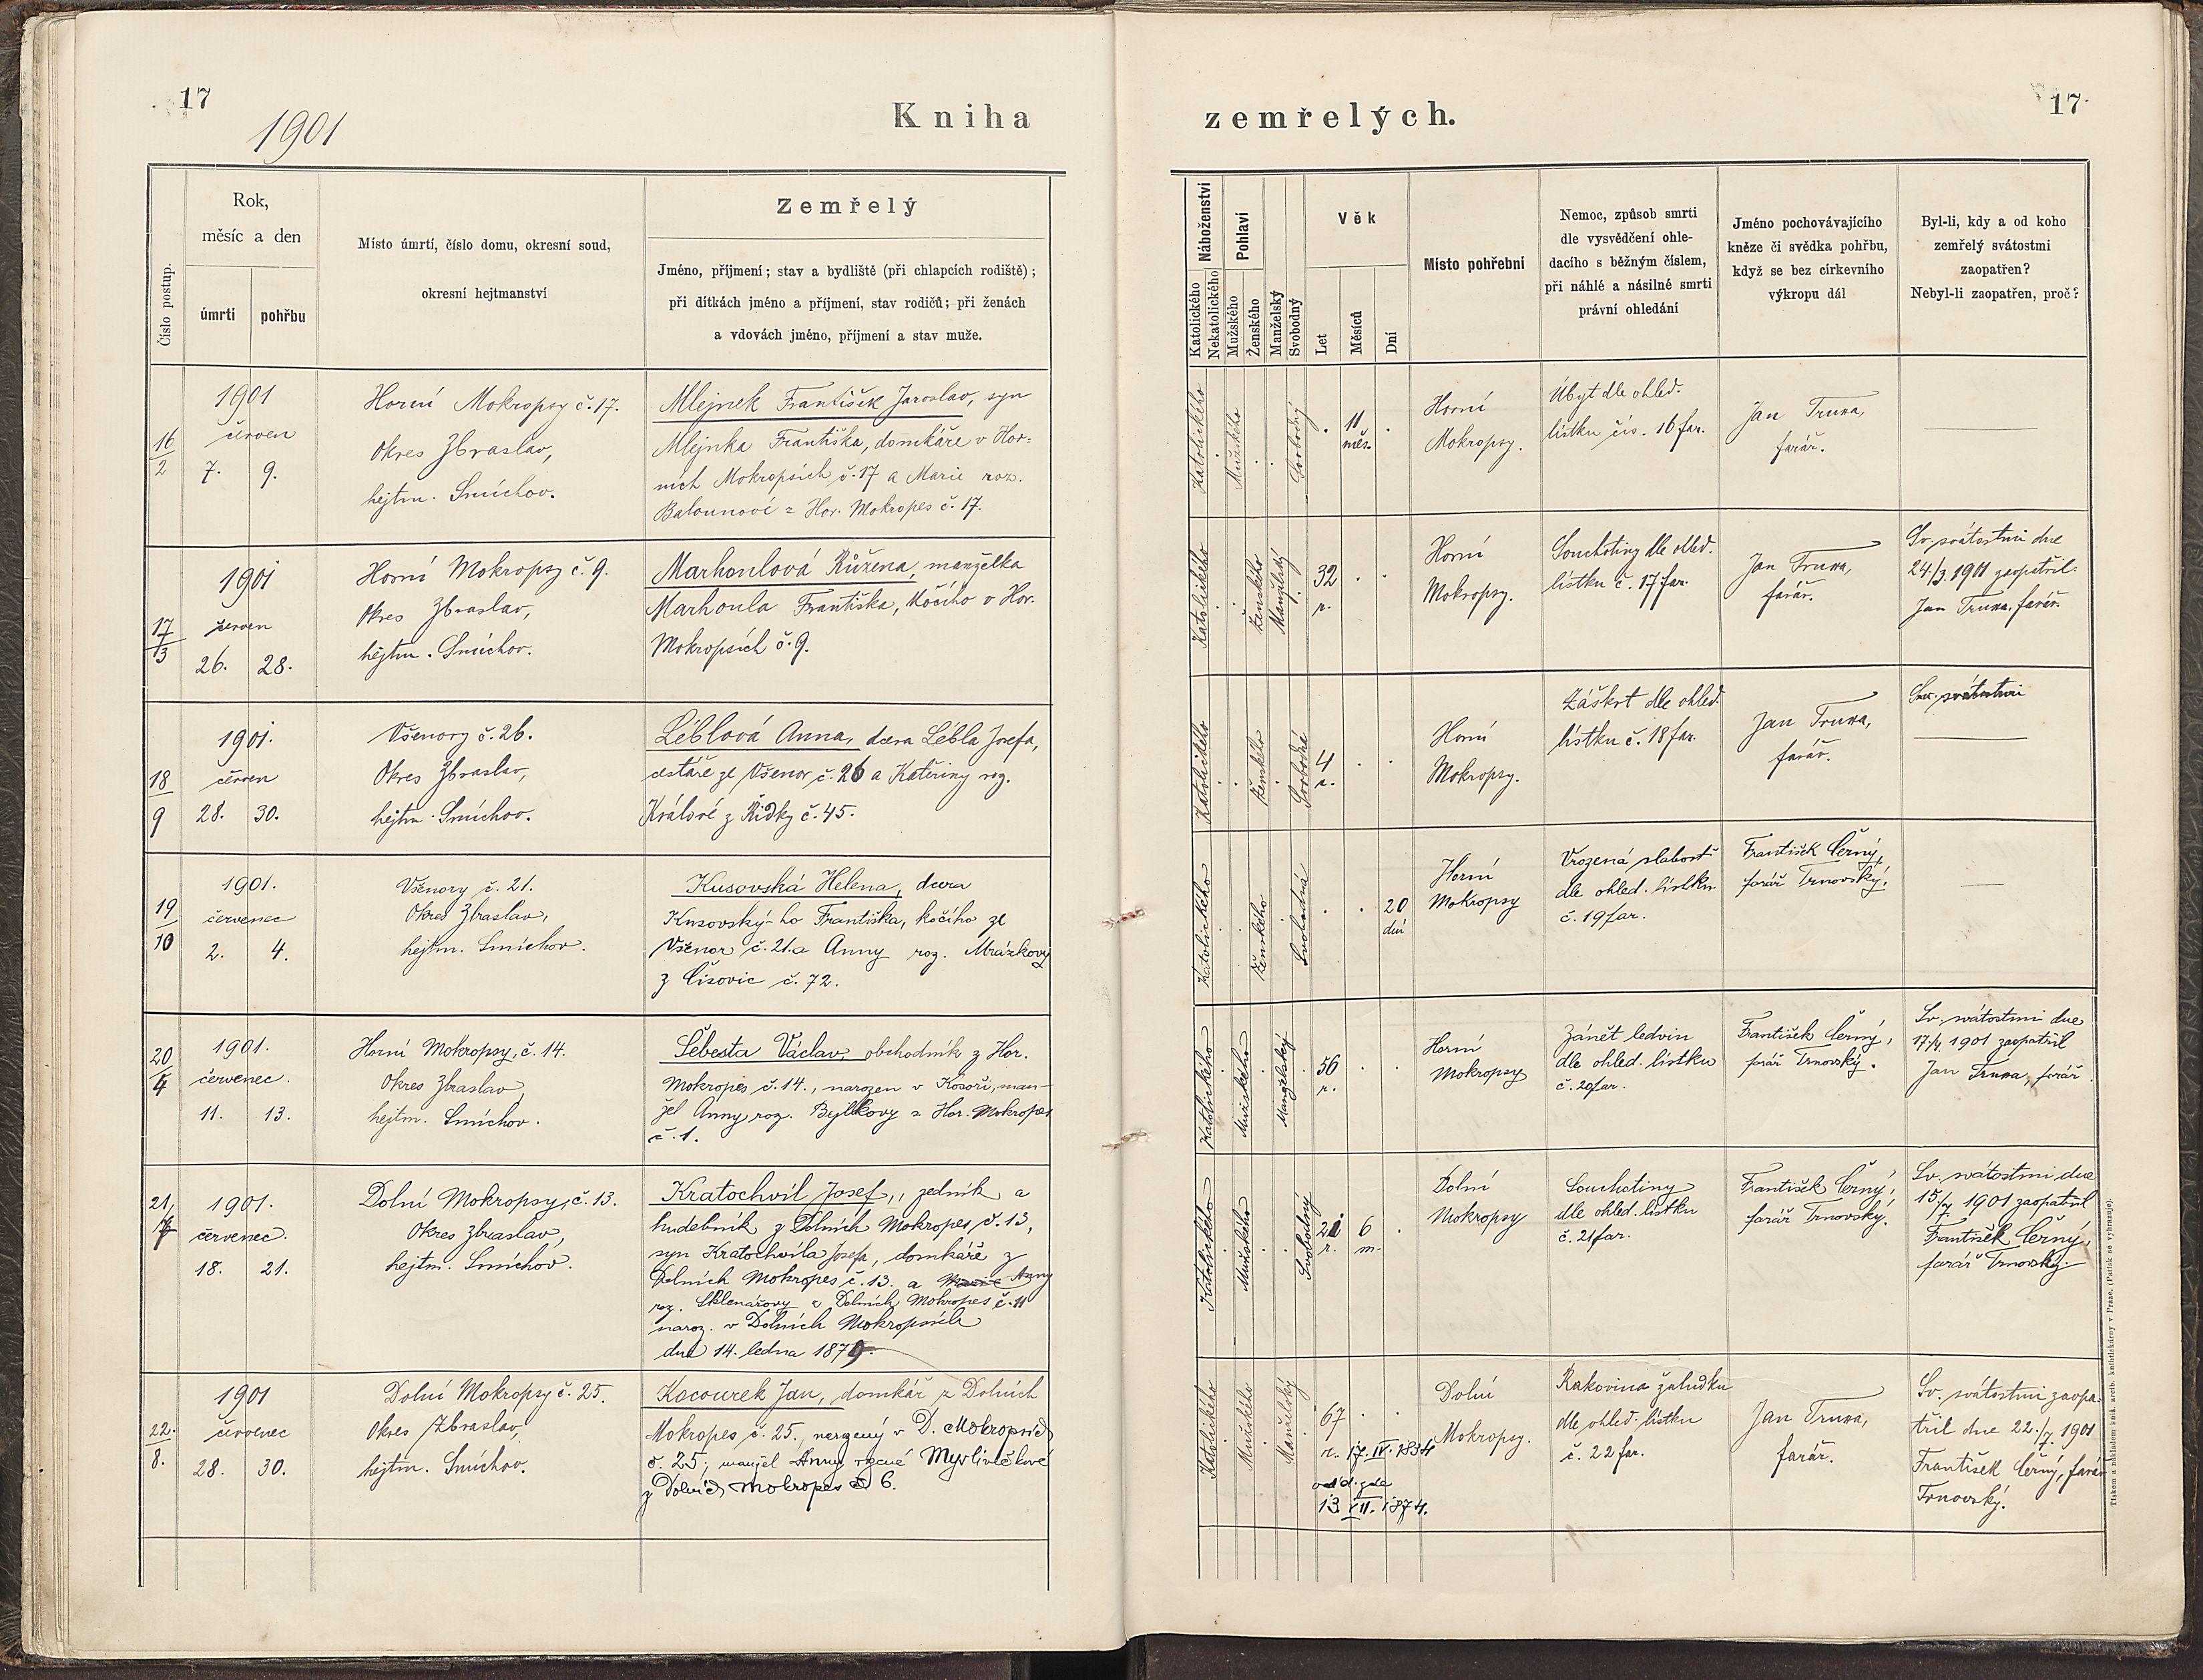 17
1901
Kniha
zemřelých.
17
Číslo postup.
Rok,
měsíc a den
úmrtí
pohřbu
Místo úmrtí, číslo domu, okresní soud,
okresní hejtmanství
Zemřelý
Jméno, příjmení; stav a bydliště (při chlapcích rodiště);
při dítkách jméno a příjmení, stav rodičů; při ženách
a vdovách jméno, příjmení a stav muže.
Náboženství
Katolického
Nekatolického
Pohlaví
Mužského
Ženského
Manželský
Svobodný
Věk
Let
Měsíců
Dní
Místo pohřební
Nemoc, způsob smrti
dle vysvědčení ohle-
dacího s běžným číslem,
při náhlé a násilné smrti
právní ohledání
Jméno pochovávajícího
kněze či svědka pohřbu,
když se bez církevního
výkropu dál
Byl-li, kdy a od koho
zemřelý svátostmi
zaopatřen?
Nebyl-li zaopatřen, proč?
16
2
1901
červen
7. 9.
Horní Mokropsy č. 17.
Okres Zbraslav,
hejtm. Smíchov.
Mlejnek František Jaroslav, syn
Mlejnka Františka, domkáře v Hor-
ních Mokropsích č. 17 a Marie roz.
Balounové z Hor. Mokropes č. 17.
Katolického
Mužského
Svobodný
11
měs.
Horní
Mokropsy.
Úbyt dle ohled.
lístku čís. 16 far.
Jan Truxa,
farář.
17
3
1901
červen
26. 28.
Horní Mokropsy č. 9.
Okres Zbraslav,
hejtm. Smíchov.
Marhoulová Růžena, manželka
Marhoula Františka, kočího v Hor.
Mokropsích č. 9.
Katolického
Ženského
Manželský
32
r.
Horní
Mokropsy.
Souchotiny dle ohled.
lístku č. 17 far.
Jan Truxa,
farář.
Sv. svátostmi dne
24./3. 1901 zaopatřil
Jan Truxa, farář.
18
9
1901.
červen
28. 30.
Všenory č. 26.
Okres Zbraslav,
hejtm. Smíchov.
Léblová Anna, dcera Lébla Josefa,
cestáře ze Všenor č. 26 a Kateřiny roz.
Králové z Řidky č. 45.
Katolického
Ženského
Svobodná
4
r.
Horní
Mokropsy.
Záškrt dle ohled.
lístku č. 18 far.
Jan Truxa,
farář.
Sv. svátostmi
19
10
1901.
červenec
2. 4.
Všenory č. 21.
Okres Zbraslav,
hejtm. Smíchov.
Kusovská Helena, dcera
Kusovský-ho Františka, kočího ze
Všenor č. 21. a Anny roz. Mrázkovy
z Čisovic č. 72.
Katolického
Ženského
Svobodná
20
dní
Horní
Mokropsy
Vrozená slabost
dle ohled. lístku
č. 19 far.
František Černý,
farář Trnovský.
20
4
1901.
červenec.
11. 13.
Horní Mokropsy, č. 14.
Okres Zbraslav,
hejtm. Smíchov.
Šebesta Václav, obchodník z Hor.
Mokropes č. 14., narozen v Kosoři, man-
žel Anny roz. Bylkovy z Hor. Mokropes
č. 1.
Katolického
Mužského
Manželský
56
r.
Horní
Mokropsy
Zánět ledvin
dle ohled. lístku
č. 20 far.
František Černý,
farář Trnovský.
Sv. svátostmi dne
17/4. 1901 zaopatřil
Jan Truxa, farář
21
7
1901.
červenec.
18. 21.
Dolní Mokropsy, č. 13.
Okres Zbraslav,
hejtm. Smíchov.
Kratochvíl Josef, zedník a
hudebník z Dolních Mokropes, č. 13,
syn Kratochvíla Josefa, domkáře z
Dolních Mokropes č. 13. a Marie Anny
roz. Sklenářovy z Dolních Mokropes č. 11
naroz. v Dolních Mokropsích
dne 14. ledna 1879.
Katolického
Mužského
Svobodný
21
r.
6
m.
Dolní
Mokropsy
Souchotiny
dle ohled. lístku
č. 21 far.
František Černý,
farář Trnovský.
Sv. svátostmi dne
15/7. 1901 zaopatřil
František Černý,
farář Trnovský.
22.
8.
1901
červenec
28. 30.
Dolní Mokropsy č. 25.
Okres Zbraslav,
hejtm. Smíchov.
Kocourek Jan, domkář z Dolních
Mokropes č. 25., narozený v D. Mokropsích
č. 25; manžel Anny rozené Myslivečkové
z Dolních Mokropes č. 6.
Katolického
Mužského
Manželský
67
r. 17. IV. 1834
odd. zde
13. VII. 1874.
Dolní
Mokropsy.
Rakovina žaludku
dle ohled. lístku
č. 22 far.
Jan Truxa,
farář.
Sv. svátostmi zaopa-
třil dne 22./7. 1901
František Černý, farář
Trnovský.
Tiskem a nákladem kníž. arcib. knihtiskárny v Praze. (Patisk se vyhrazuje).